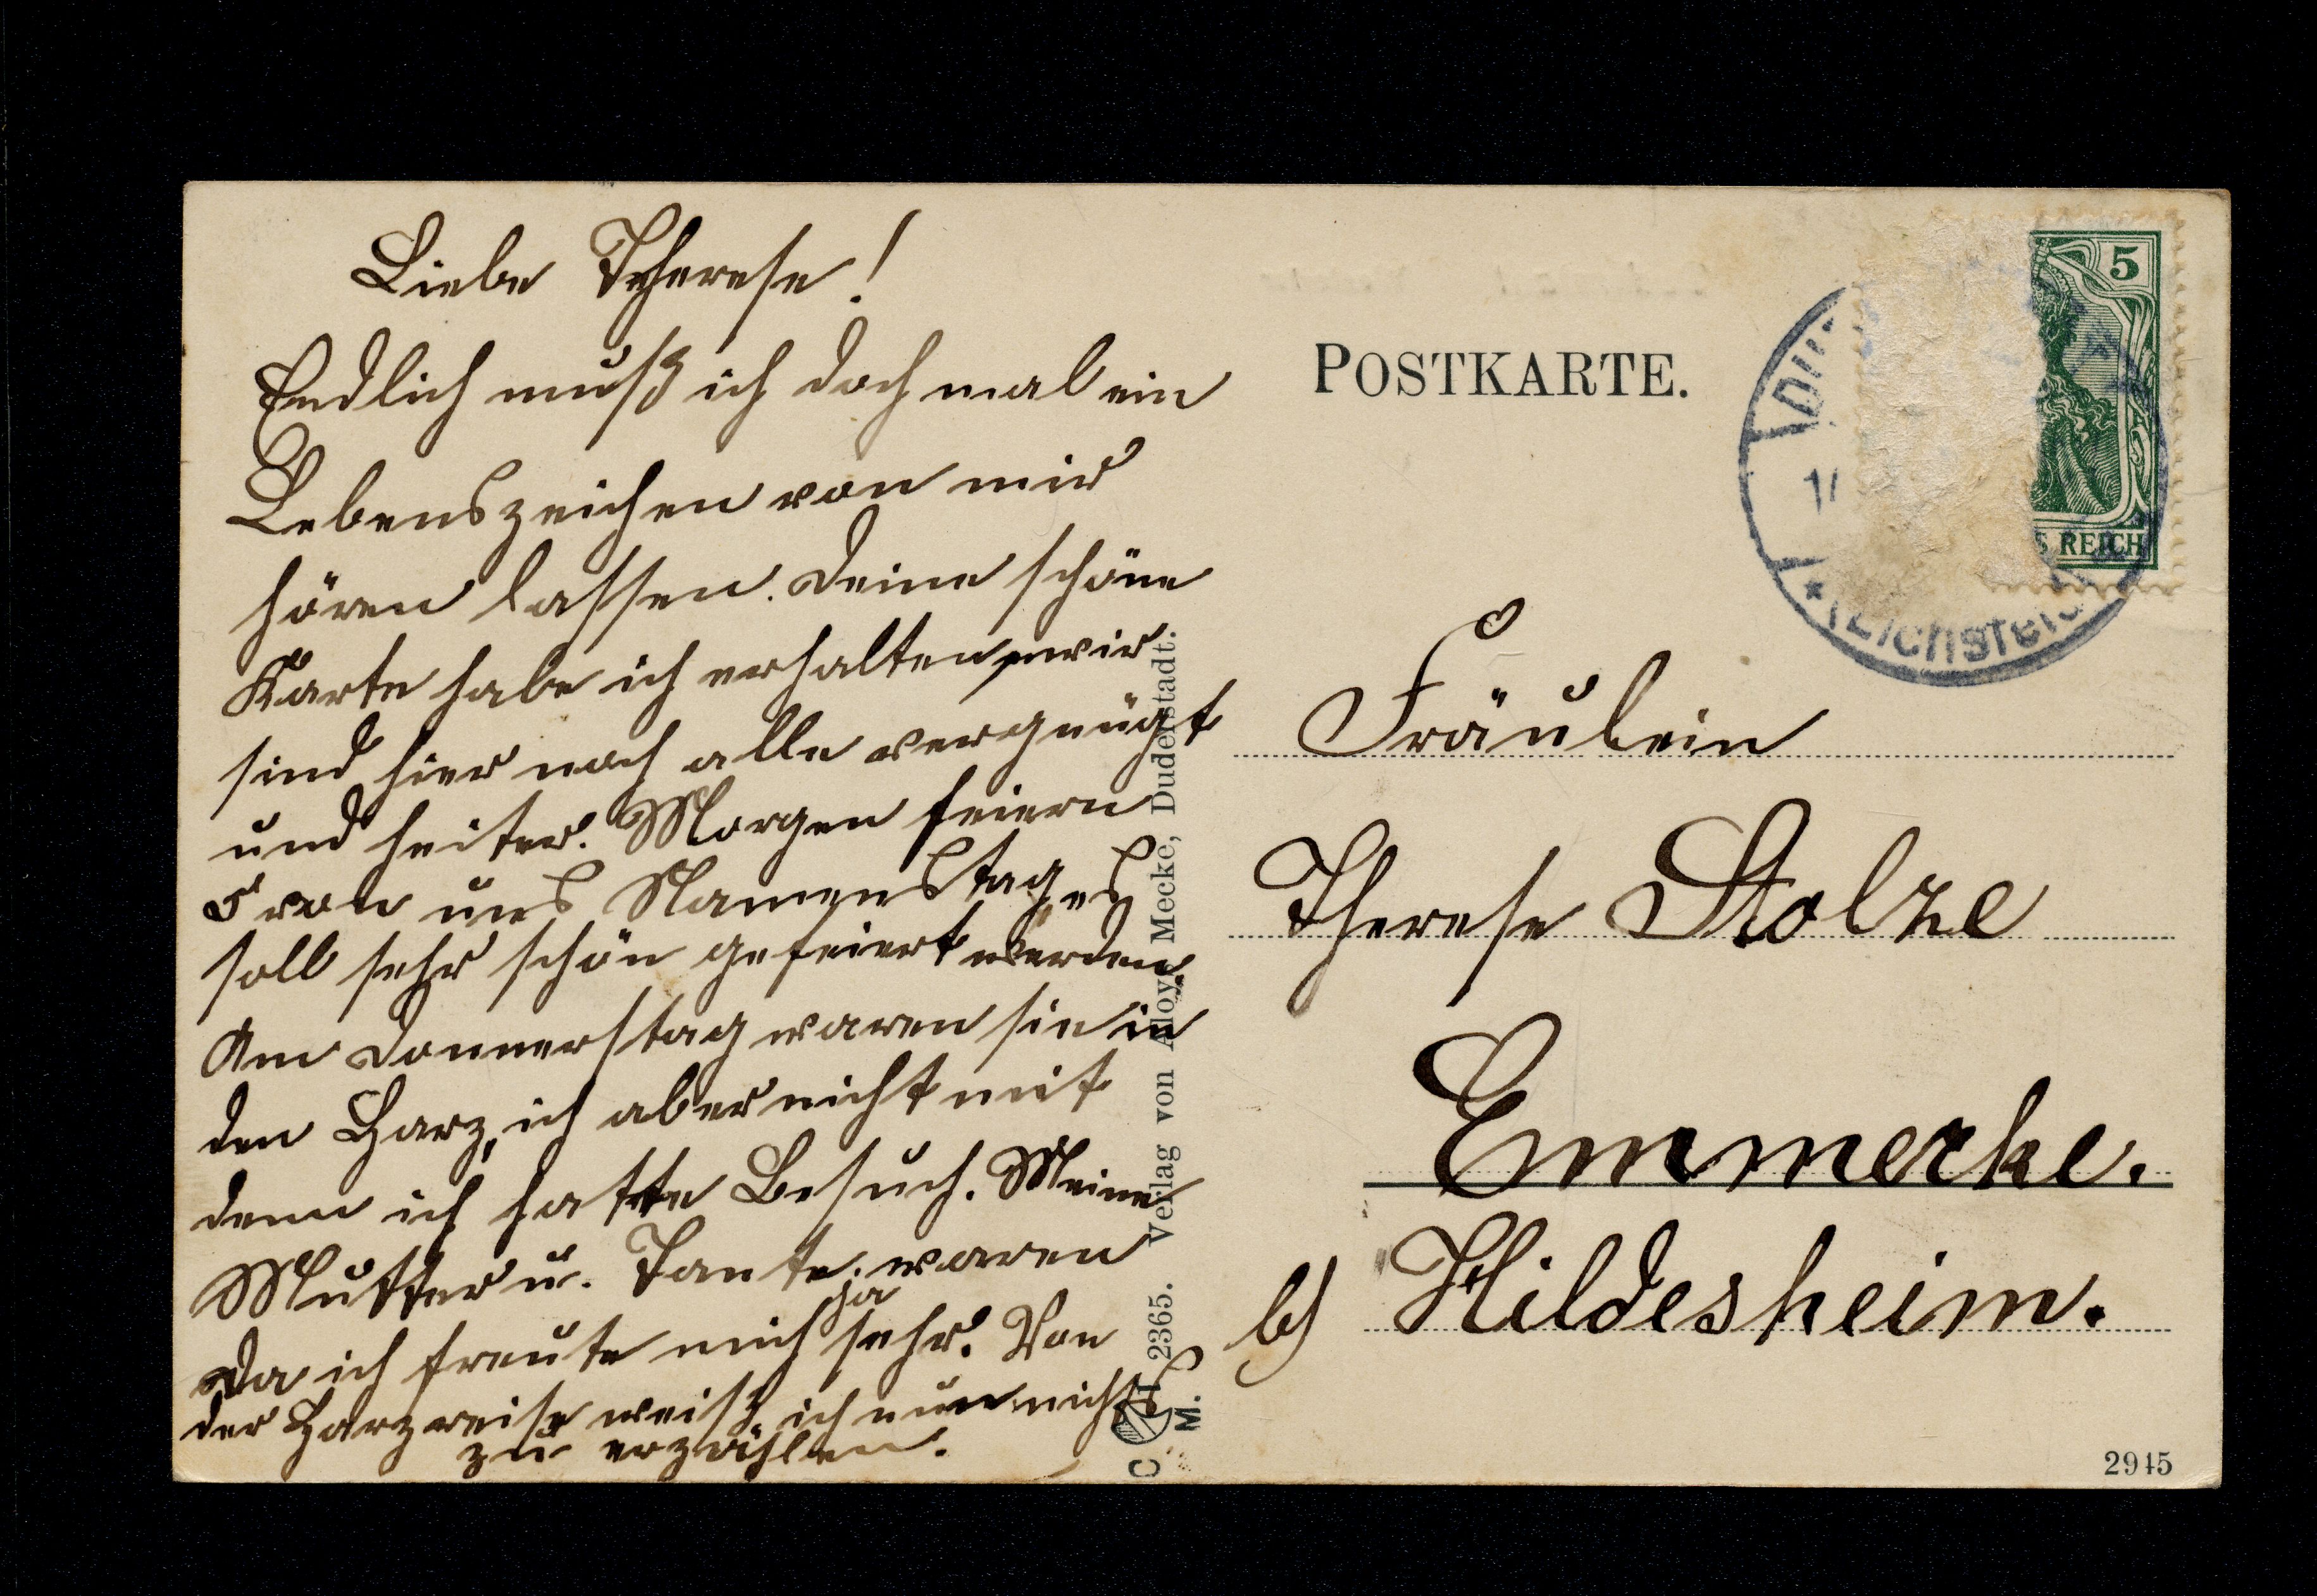 Liebe Therese!
Endlich muß ich doch mal ein
Lebenszeichen von mir
hören lassen. Deine schöne
Karte habe ich erhalten, wir
sind hier noch alle vergnügt
und heiter. Morgen feiern
5 von uns Namenstag, es
soll sehr schön gefeiert werden.
Am Donnerstag waren sie in
den Harz, ich aber nicht mit
denn ich hatte Besuch. Meine
Mutter u. Tante waren
da ich freute mich ja sehr. Von
der Harzreise weiß ich nun nichts
zu erzählen.
Verlag von Aloys Mecke, Duderstadt.
2365.
M.
POSTKARTE.
5
S REICH
(Eichsfeld
Fräulein
Therese Stolze
Emmerke.
b/ Hildesheim.
2945